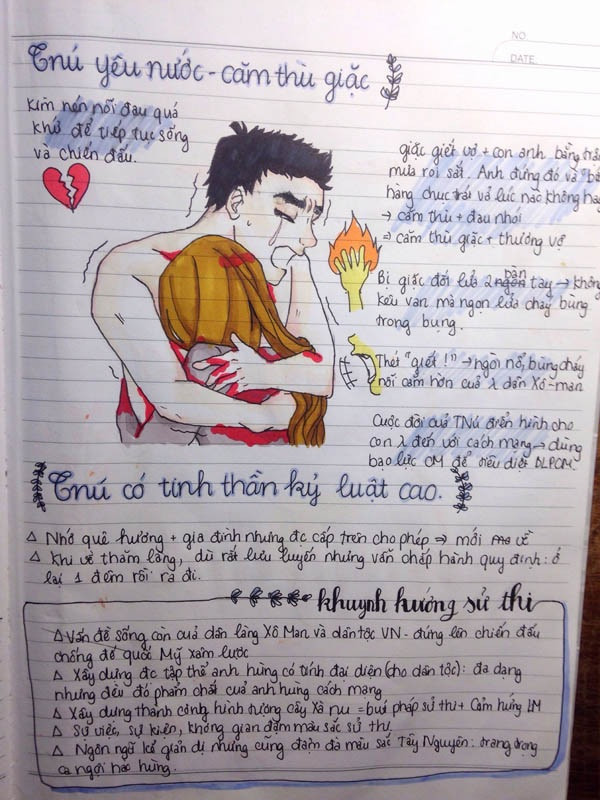 NO.
DATE.
Tnú yêu nước - căm thù giặc
Kìm nén nỗi đau quá
khứ để tiếp tục sống
và chiến đấu.
giặc giết vợ + con anh bằng trận
mưa roi sắt. Anh đứng đó và "bứt
hàng chục trái vả lúc nào không hay
→ căm thù + đau nhói
⇒ căm thù giặc + thương vợ
Bị giặc đốt lửa 2 bàn tay → không
kêu van mà ngọn lửa cháy bùng
trong bụng.
Thét "giết!" → ngòi nổ, bùng cháy
nỗi căm hờn của λ dân Xô-man
Cuộc đời của TNú điển hình cho
con λ đến với cách mạng → dùng
bạo lực CM để tiêu diệt BLPCM.
Tnú có tinh thần kỷ luật cao.
Δ Nhớ quê hương + gia đình nhưng đc cấp trên cho phép ⇒ mới về
Δ Khi về thăm làng, dù rất lưu luyến nhưng vẫn chấp hành quy định: ở
lại 1 đêm rồi ra đi.
khuynh hướng sử thi
Δ Vấn đề sống còn của dân làng Xô Man và dân tộc VN - đứng lên chiến đấu
chống đế quốc Mỹ xâm lược
Δ Xây dựng đc tập thể anh hùng có tính đại diện (cho dân tộc): đa dạng
nhưng đều có phẩm chất của anh hùng cách mạng
Δ Xây dựng thành công hình tượng cây Xà nu = bút pháp sử thi + Cảm hứng LM
Δ Sự việc, sự kiện, không gian đậm màu sắc sử thi
Δ Ngôn ngữ kể giản dị nhưng cũng đậm đà màu sắc Tây Nguyên: trang trọng
ca ngợi hào hùng.